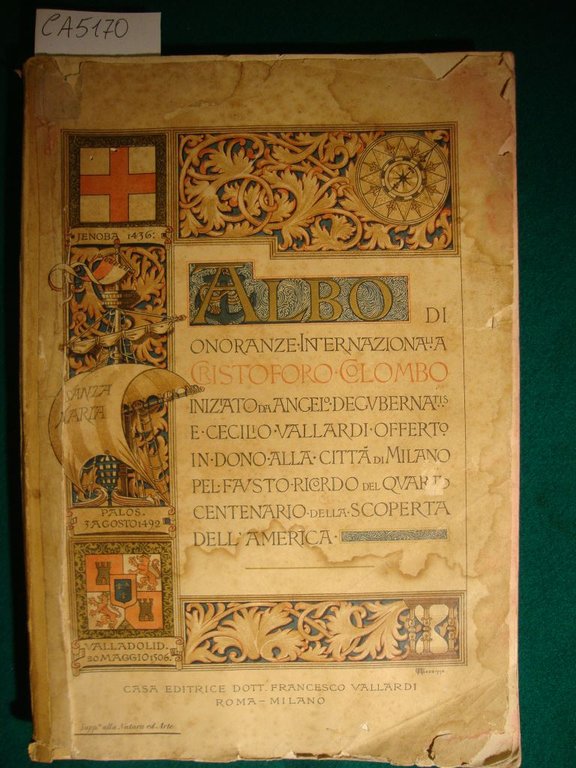 CA5170
JENOBA 1436:
SANTA
MARIA
PALOS.
3 AGOSTO 1492
VALLADOLID.
20 MAGGIO 1506.
ALBO DI
ONORANZE · INTERNAZIONALI A
CRISTOFORO · COLOMBO
INIZATO DA ANGELO · DEGVBERNATIS
E · CECILIO · VALLARDI · OFFERTO
IN · DONO · ALLA · CITTÁ DI MILANO
PEL · FAVSTO · RICORDO DEL QVARTO
CENTENARIO · DELLA · SCOPERTA
DELL'AMERICA ·
CASA EDITRICE DOTT. FRANCESCO VALLARDI
ROMA - MILANO
Supp.to alla Natura ed Arte